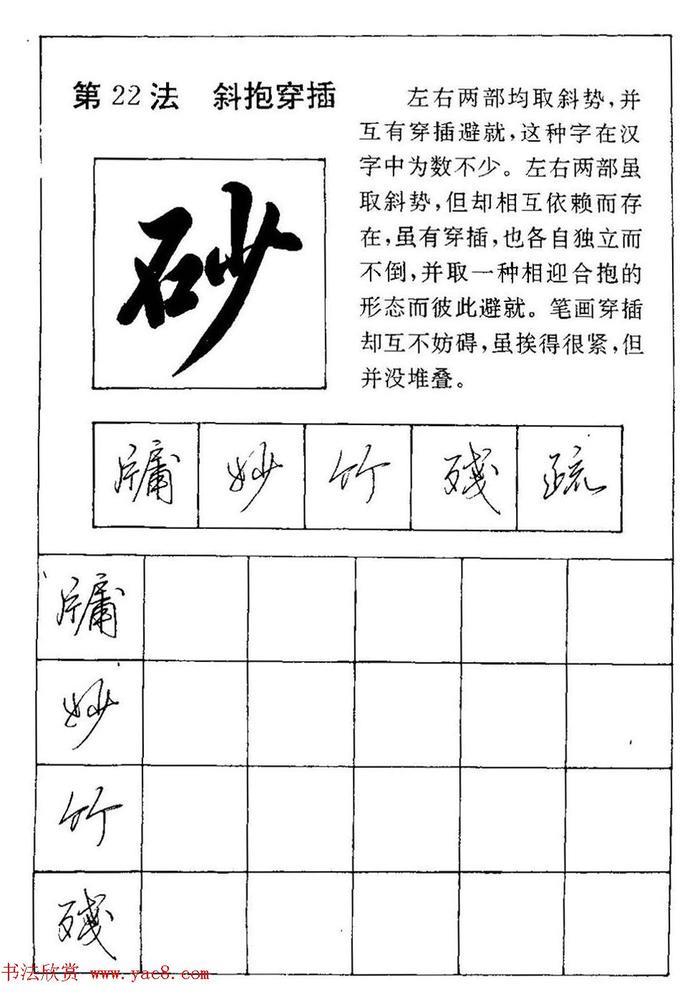 第22法 斜抱穿插
左右两部均取斜势,并
互有穿插避就,这种字在汉
字中为数不少。左右两部虽
取斜势,但却相互依赖而存
在,虽有穿插,也各自独立而
不倒,并取一种相迎合抱的
形态而彼此避就。笔画穿插
却互不妨碍,虽挨得很紧,但
并没堆叠。
砂
牗 妙 竹 残 疏
牗
妙
竹
残
书法欣赏 www.yac8.com